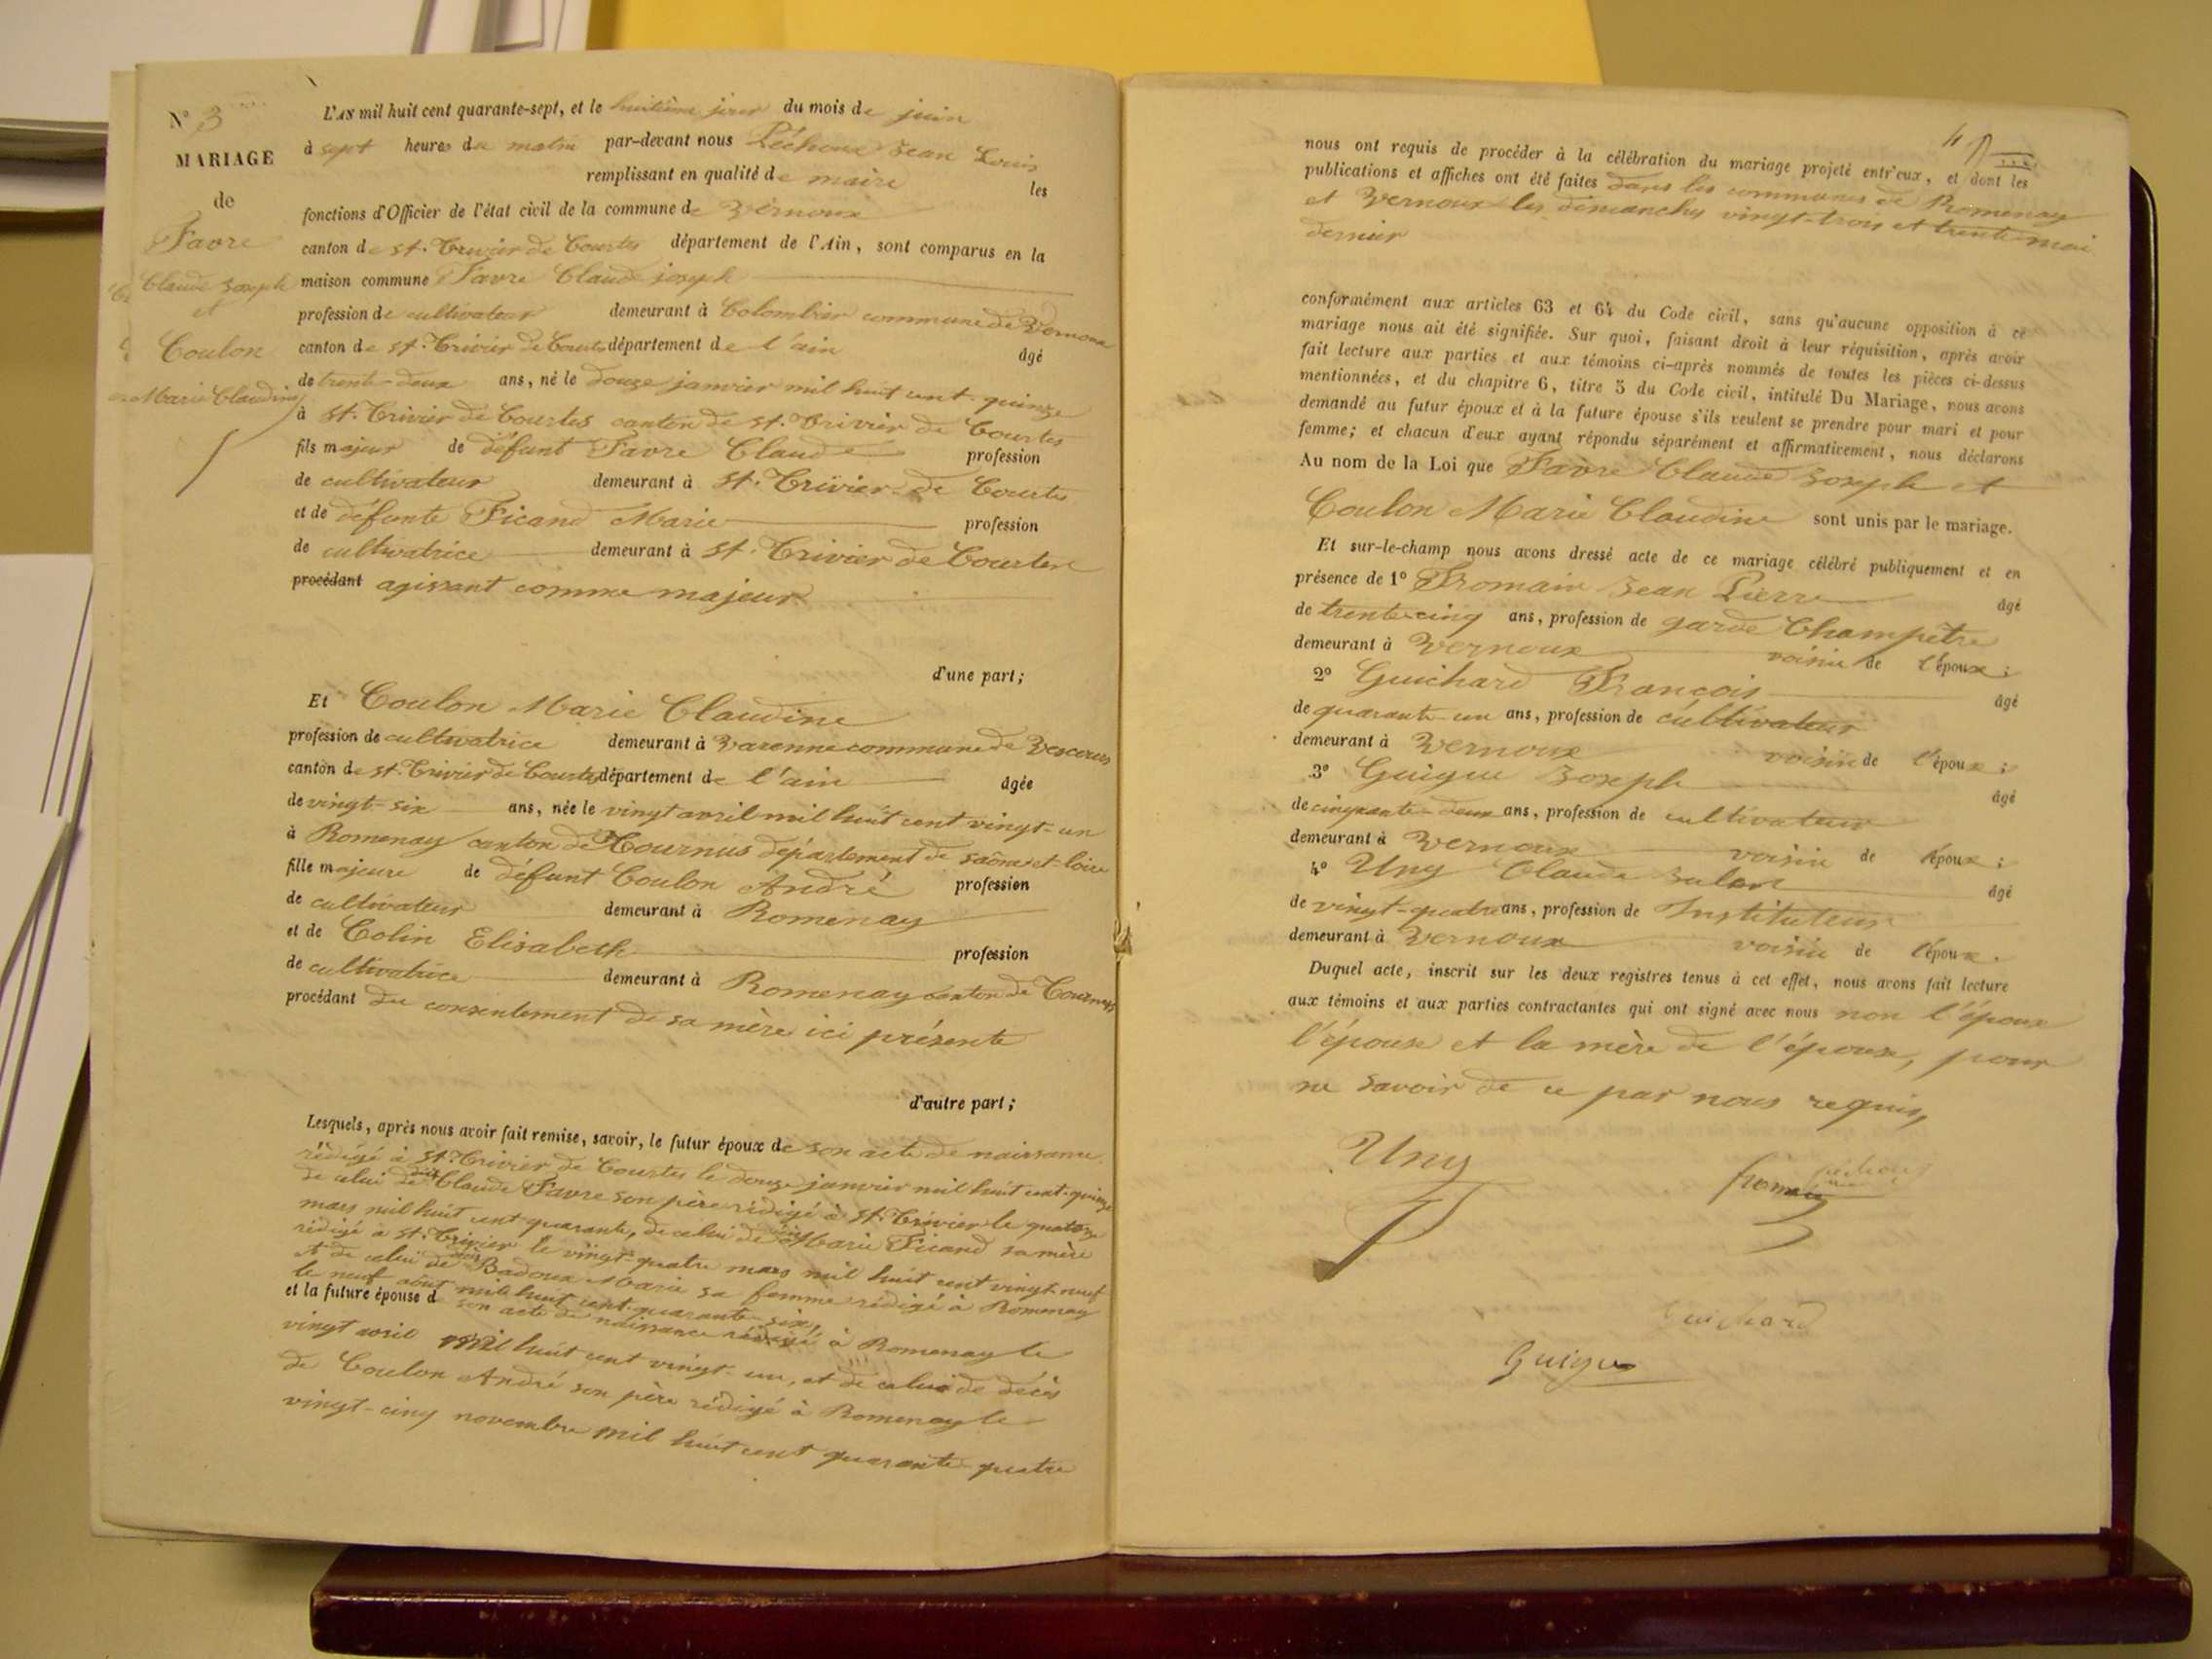 N° 3
MARIAGE
de
Favre
Claude Joseph
et
Coulon
Marie Claudine
L'AN mil huit cent quarante-sept, et le huitième jour du mois de juin
à sept heures du matin par-devant nous Péchoux Jean Louis
remplissant en qualité de maire les
fonctions d'Officier de l'état civil de la commune de Vernoux
canton de St. Trivier de Courtes département de l'Ain, sont comparus en la
maison commune Favre Claude joseph
profession de cultivateur demeurant à Colombier commune de Vernoux
canton de St. Trivier de Courtes département de l'ain âgé
de trente-deux ans, né le douze janvier mil huit cent quinze
à St. Trivier de Courtes canton de St. Trivier de Courtes
fils majeur de défunt Favre Claude profession
de cultivateur demeurant à St. Trivier de Courtes
et de défunte Ficand Marie profession
de cultivatrice demeurant à St. Trivier de Courtes
procédant agissant comme majeur
d'une part;
Et Coulon Marie Claudine
profession de cultivatrice demeurant à Varenne commune de
canton de St. Trivier de Courtes département de l'ain âgée
de vingt-six ans, née le vingt avril mil huit cent vingt-un
à Romenay canton de Tournus département de saône-et-loire
fille majeure de défunt Coulon André profession
de cultivateur demeurant à Romenay
et de Colin Elisabeth profession
de cultivatrice demeurant à Romenay canton de Tournus
procédant du consentement de sa mère ici présente
d'autre part;
Lesquels, après nous avoir fait remise, savoir, le futur époux de son acte de naissance
rédigé à St. Trivier de Courtes le douze janvier mil huit cent-quinze
de celui de décès Claude Favre son père rédigé à St. Trivier le quatorze
mars mil huit cent quarante, de celui de décès Marie Ficand sa mère
rédigé à St. Trivier le vingt-quatre mars mil huit cent vingt-neuf
et de celui de décès Badoux Marie sa femme rédigé à Romenay
le neuf août mil huit cent quarante-six,
et la future épouse d son acte de naissance rédigé à Romenay le
vingt avril mil huit cent vingt-un, et de celui de décès
de Coulon André son père rédigé à Romenay le
vingt-cinq novembre mil huit cent quarante-quatre
nous ont requis de procéder à la célébration du mariage projeté entr'eux, et dont les
publications et affiches ont été faites dans les communes de Romenay
et Vernoux les dimanches vingt-trois et trente mai
dernier
conformément aux articles 63 et 64 du Code civil, sans qu'aucune opposition à ce
mariage nous ait été signifiée. Sur quoi, faisant droit à leur réquisition, après avoir
fait lecture aux parties et aux témoins ci-après nommés de toutes les pièces ci-dessus
mentionnées, et du chapitre 6, titre 5 du Code civil, intitulé Du Mariage, nous avons
demandé au futur époux et à la future épouse s'ils veulent se prendre pour mari et pour
femme; et chacun d'eux ayant répondu séparément et affirmativement, nous déclarons
Au nom de la Loi que Favre Claude Joseph et
Coulon Marie Claudine sont unis par le mariage.
Et sur-le-champ nous avons dressé acte de ce mariage célébré publiquement et en
présence de 1° Fromain Jean Pierre âgé
de trente-cinq ans, profession de garde Champêtre
demeurant à Vernoux voisin de l'époux;
2° Guichard François âgé
de quarante-un ans, profession de cultivateur
demeurant à Vernoux voisin de l'époux;
3° Guigue Joseph âgé
de cinquante-deux ans, profession de cultivateur
demeurant à Vernoux voisin de l'époux;
4° Uny Claude âgé
de vingt-quatre ans, profession de Instituteur
demeurant à Vernoux voisin de l'époux.
Duquel acte, inscrit sur les deux registres tenus à cet effet, nous avons fait lecture
aux témoins et aux parties contractantes qui ont signé avec nous non l'époux
l'épouse et la mère de l'épouse, pour
ne savoir de ce par nous requis,
Uny
fromain
péchoux
Guichard
Guigue